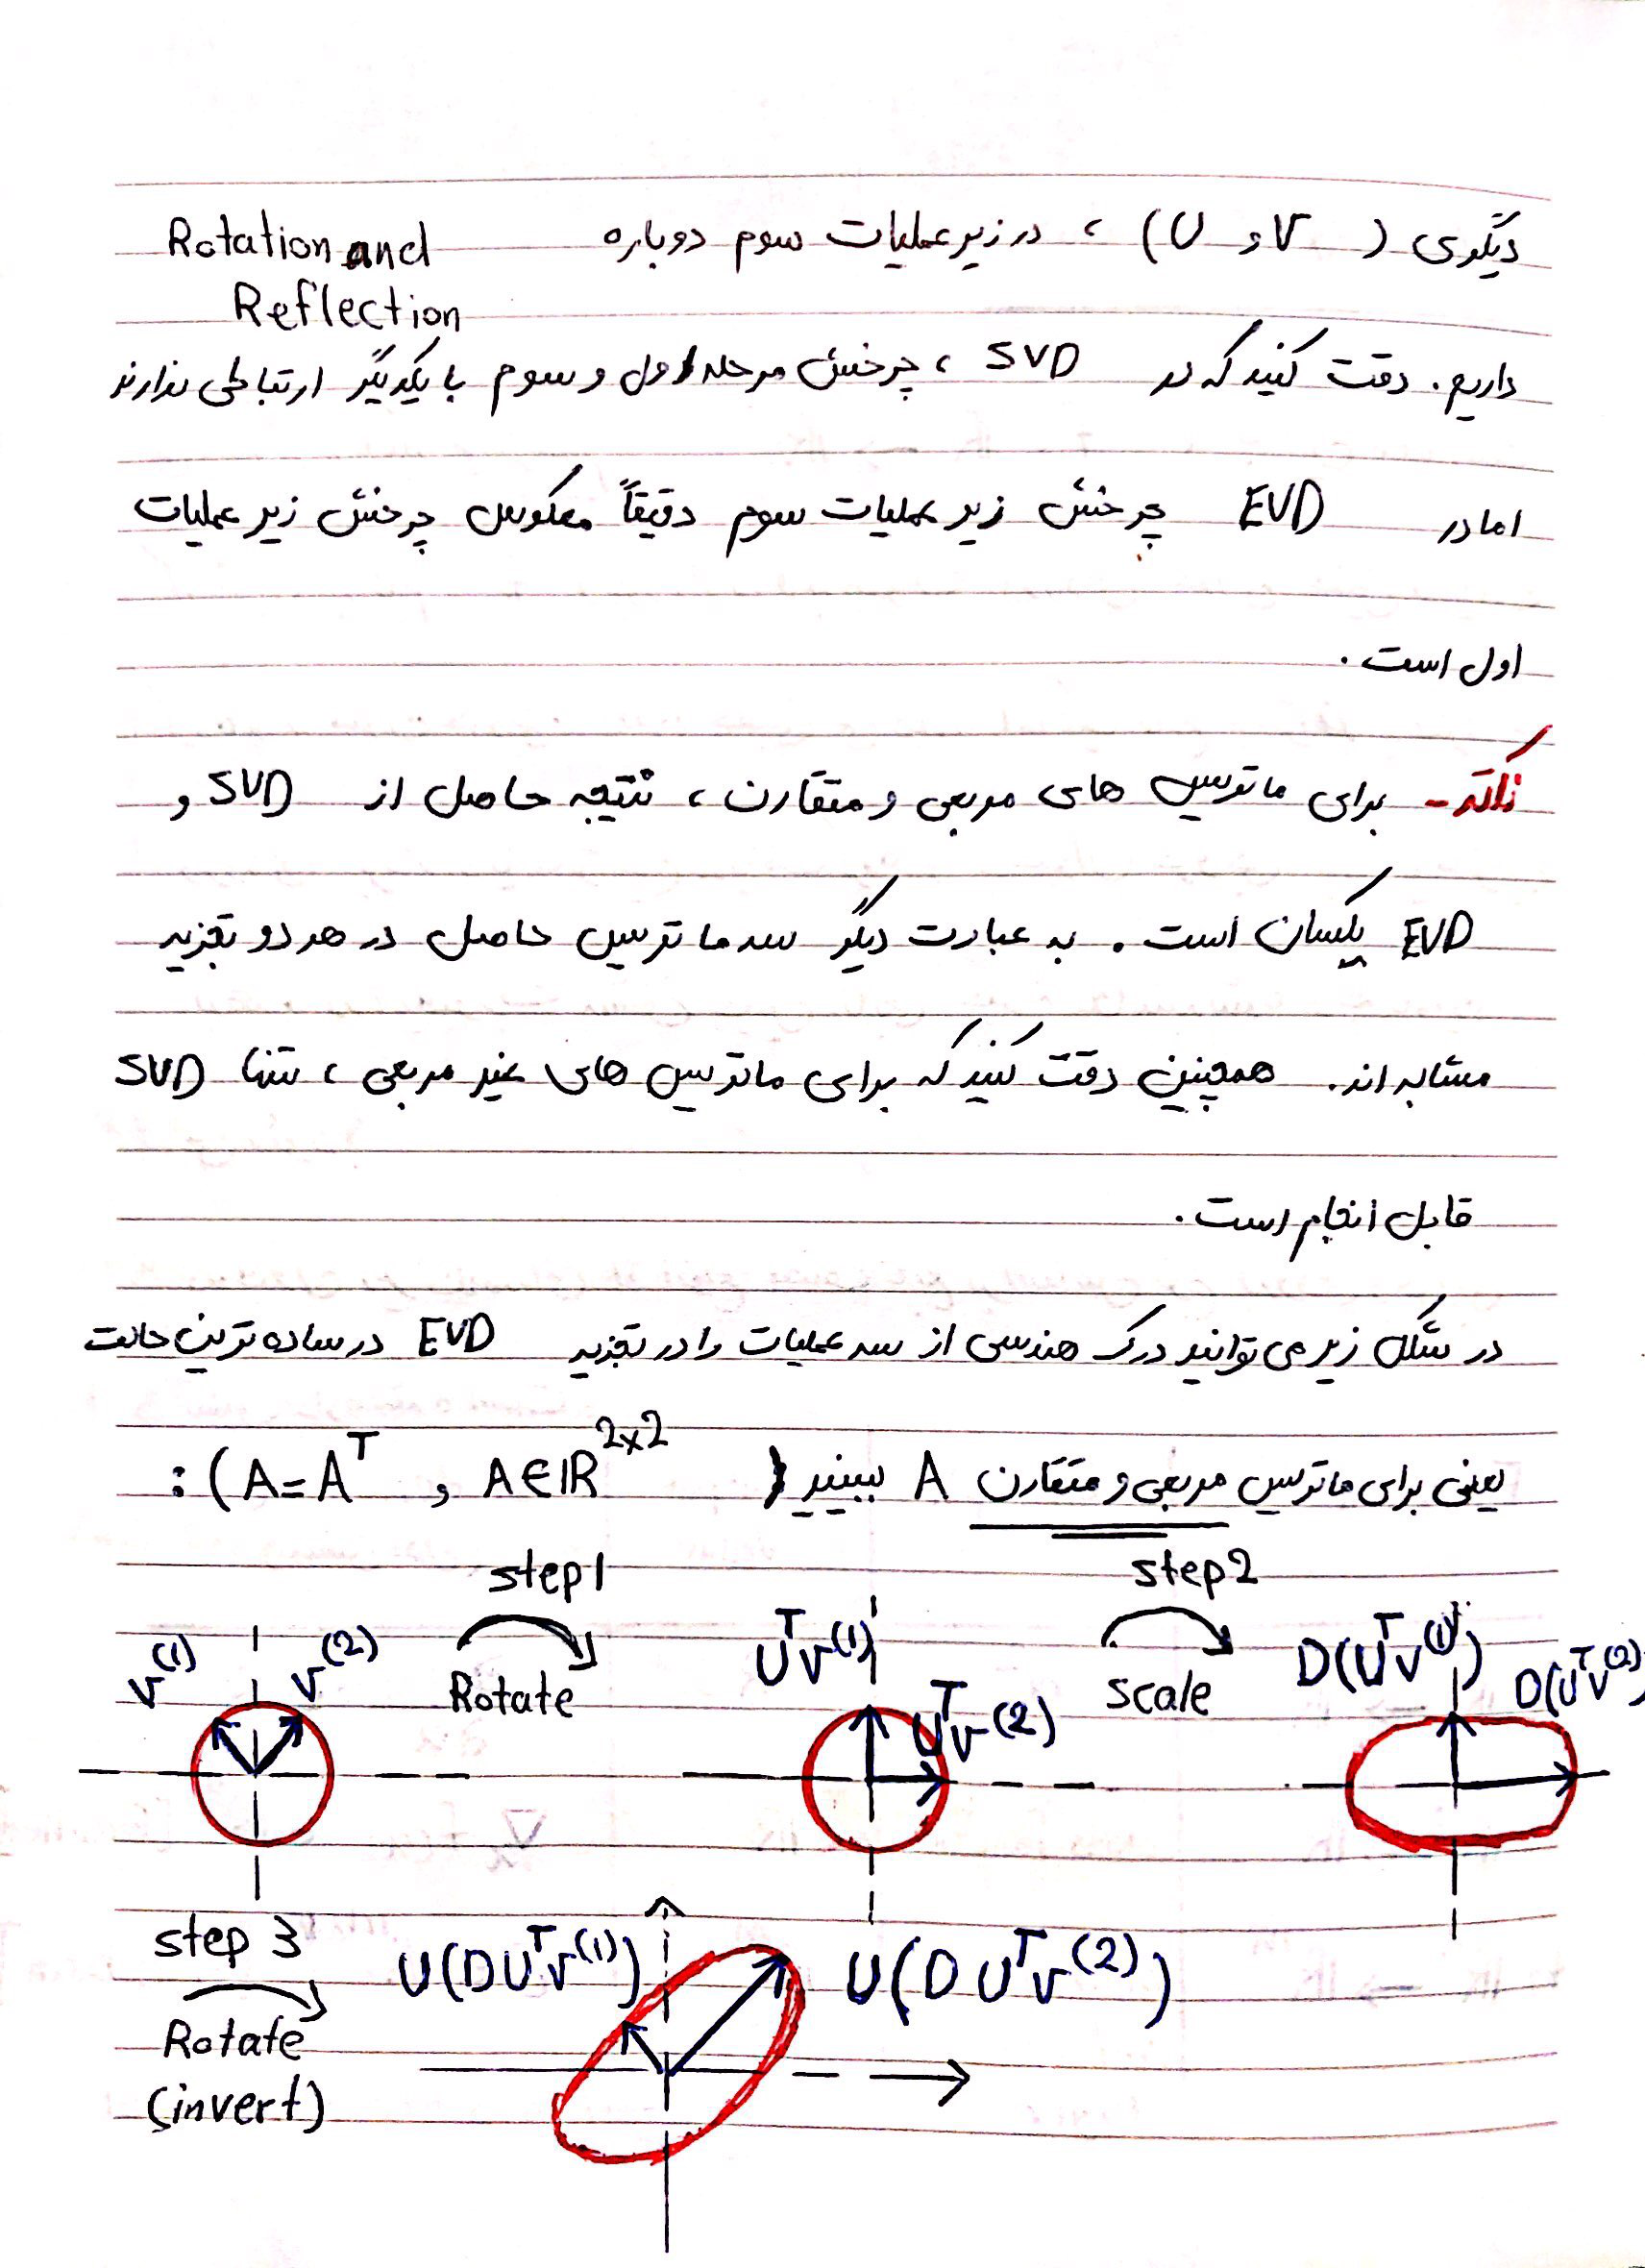 دیگری (V و U) ، در زیر عملیات سوم دوباره Rotation and
Reflection
داریم. دقت کنید که در SVD ، چرخش مرحله اول و سوم با یکدیگر ارتباطی ندارند
اما در EVD چرخش زیر عملیات سوم دقیقاً معکوس چرخش زیر عملیات
اول است .
نکته - برای ماتریس های مربعی و متقارن ، نتیجه حاصل از SVD و
EVD یکسان است . به عبارت دیگر سه ماتریس حاصل در هر دو تجزیه
مشابه اند. همچنین دقت کنید که برای ماتریس های غیر مربعی ، تنها SVD
قابل انجام است .
در شکل زیر می توانید درک هندسی از سه عملیات را در تجزیه EVD در ساده ترین حالت
یعنی برای ماتریس مربعی و متقارن A ببینید (A=Aᵀ , A∈ℝ²ˣ²) :
step1
step2
v⁽¹⁾ v⁽²⁾
Rotate
Uᵀv⁽¹⁾
Uᵀv⁽²⁾
scale
D(Uᵀv⁽¹⁾)
D(Uᵀv⁽²⁾
step 3
U(DUᵀv⁽¹⁾) U(DUᵀv⁽²⁾)
Rotate
(invert)